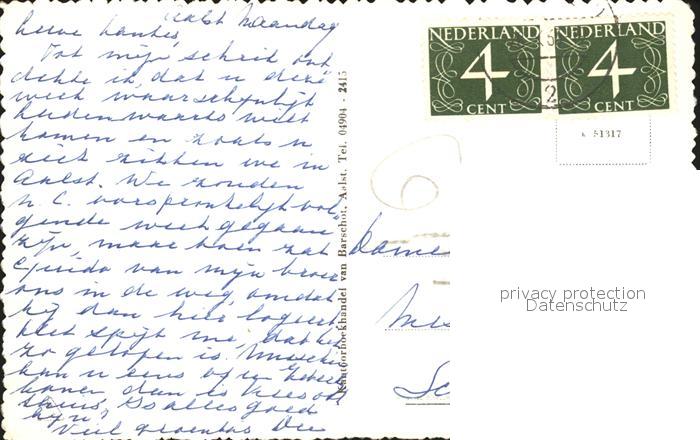 Aalst Maandag
lieve tantes,
Tot mijn schrik ont
dekte ik, dat u deze
week waarschijnlijk
komen en zoals u
ziet zitten we in
Aalst. We zouden
n.l. oorspronkelijk vol
gende week gegaan
zijn, maar toen zat
Guido van mijn broer
ons in de weg, omdat
hij dan hier logeert
Het spijt me, dat het
zo gelopen is. Misschien
kan u eens op een
komen, dan is Kees ook
thuis. Is alles goed
Veel groeten
Kantoorboekhandel van Barschot, Aalst. Tel. 04904 - 2415
NEDERLAND
4
CENT
NEDERLAND
4
CENT
k 51317
6
Dame
privacy protection
Datenschutz